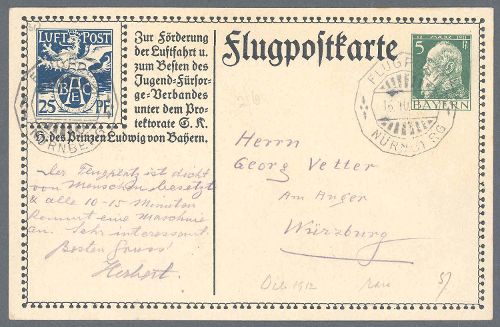 LUFT POST
BAEC
25 PF.
Zur Förderung
der Luftfahrt u.
zum Besten des
Jugend-Fürsor-
ge-Verbandes
unter dem Pro-
tektorate S. K.
H. des Prinzen Ludwig von Bayern.
Flugpostkarte
5 Pf
BAYERN
FLUGP
NÜRNBERG
NÜRNBE
Der Flugplatz ist dicht
von Menschen besetzt
& alle 10-15 Minuten
kommt eine Maschine
an. Sehr interessant.
Besten Gruss!
Herbert.
Herrn
Georg Vetter
Am Anger
Würzburg
1912